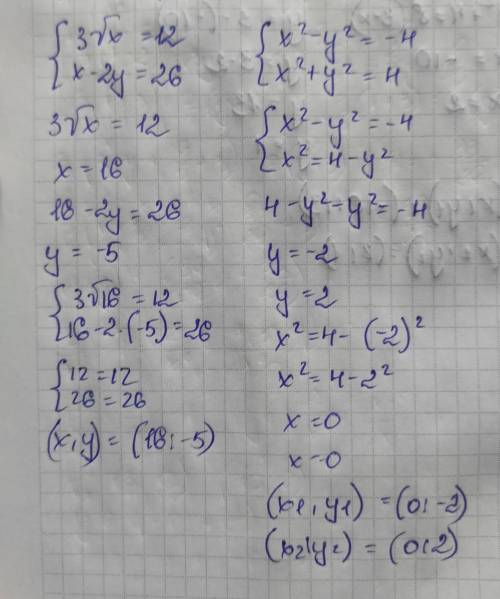 3√x = 12
x - 2y = 26
3√x = 12
x = 16
16 - 2y = 26
y = -5
3√16 = 12
16 - 2·(-5) = 26
12 = 12
26 = 26
(x, y) = (16; -5)
x² - y² = -4
x² + y² = 4
x² - y² = -4
x² = 4 - y²
4 - y² - y² = -4
y = -2
y = 2
x² = 4 - (-2)²
x² = 4 - 2²
x = 0
x = 0
(x₁, y₁) = (0; -2)
(x₂, y₂) = (0; 2)